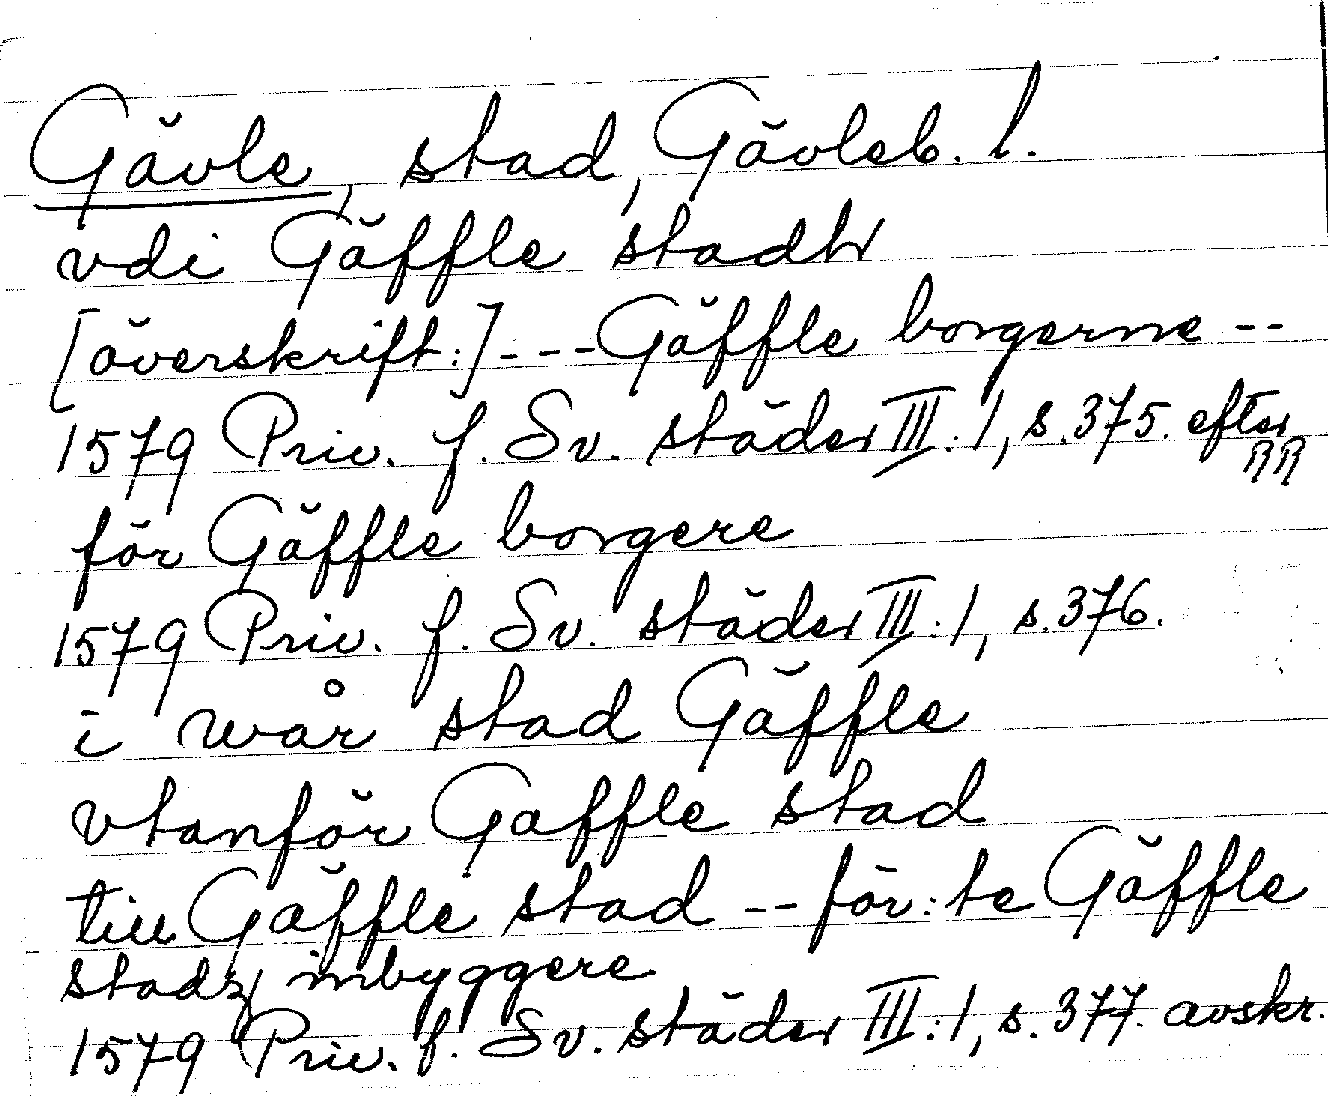 Gävle, stad, Gävleb. l.
vdi Gäffle stadh
[överskift:] --- Gäffle borgerne --
1579 Priv. f. Sv. städer III:1, s. 375. efter RR
för Gäffle borgere
1579 Priv. f. Sv. städer III:1, s. 376.
i wår stad Gäffle
vtanför Gäffle stad
till Gäffle stad -- för:te Gäffle
stadz inbyggere
1579 Priv. f. Sv. städer III:1, s. 377. avskr.